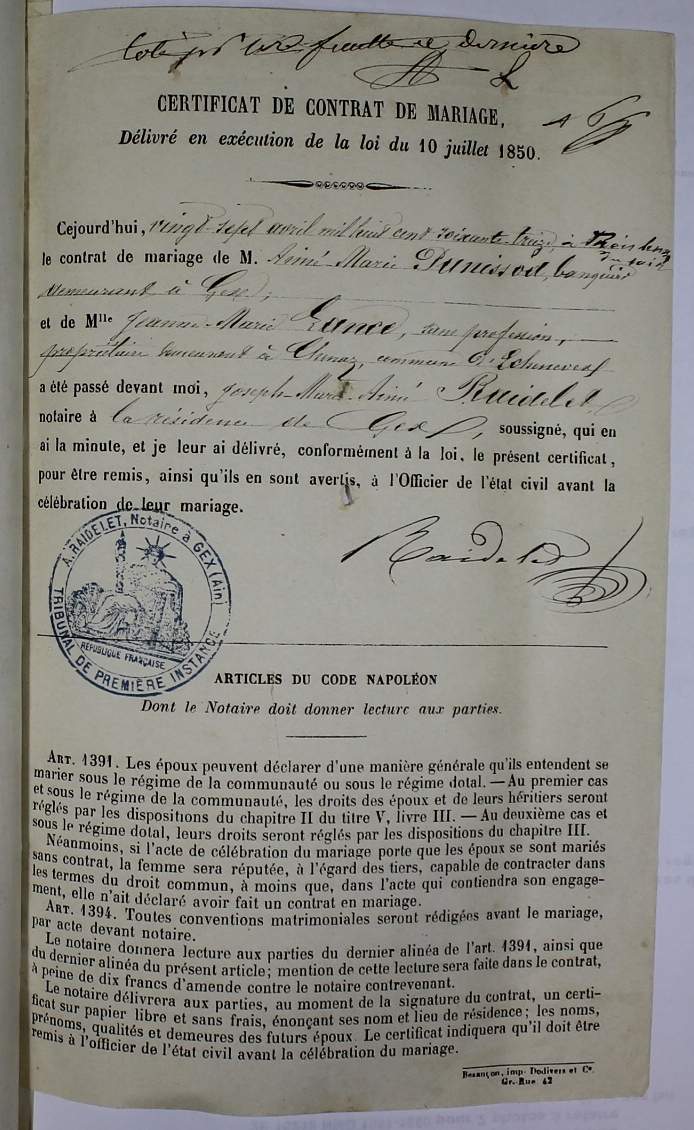 Coté pr 1re feuille et dernière
CERTIFICAT DE CONTRAT DE MARIAGE,
Délivré en exécution de la loi du 10 juillet 1850.
Cejourd'hui, vingt-sept avril mil huit cent soixante-treize, à trois heures
du soir
le contrat de mariage de M. Aimé-Marie banquier
demeurant à Gex,
et de Mlle Jeanne-Marie Lance, sans profession,
propriétaire demeurant à Chenaz, commune d'Echenevex
a été passé devant moi, Joseph-Marie-Aimé Raidelet
notaire à la résidence de Gex, soussigné, qui en
ai la minute, et je leur ai délivré, conformément à la loi, le présent certificat,
pour être remis, ainsi qu'ils en sont avertis, à l'Officier de l'état civil avant la
célébration de leur mariage.
Raidelet
A. RAIDELET, Notaire à GEX (Ain)
TRIBUNAL DE PREMIÈRE INSTANCE
RÉPUBLIQUE FRANÇAISE
ARTICLES DU CODE NAPOLÉON
Dont le Notaire doit donner lecture aux parties.
ART. 1391. Les époux peuvent déclarer d'une manière générale qu'ils entendent se
marier sous le régime de la communauté ou sous le régime dotal. — Au premier cas
et sous le régime de la communauté, les droits des époux et de leurs héritiers seront
réglés par les dispositions du chapitre II du titre V, livre III. — Au deuxième cas et
sous le régime dotal, leurs droits seront réglés par les dispositions du chapitre III.
Néanmoins, si l'acte de célébration du mariage porte que les époux se sont mariés
sans contrat, la femme sera réputée, à l'égard des tiers, capable de contracter dans
les termes du droit commun, à moins que, dans l'acte qui contiendra son engage-
ment, elle n'ait déclaré avoir fait un contrat en mariage.
ART. 1394. Toutes conventions matrimoniales seront rédigées avant le mariage,
par acte devant notaire.
Le notaire donnera lecture aux parties du dernier alinéa de l'art. 1391, ainsi que
du dernier alinéa du présent article; mention de cette lecture sera faite dans le contrat,
à peine de dix francs d'amende contre le notaire contrevenant.
Le notaire délivrera aux parties, au moment de la signature du contrat, un certi-
ficat sur papier libre et sans frais, énonçant ses nom et lieu de résidence; les noms,
prénoms, qualités et demeures des futurs époux. Le certificat indiquera qu'il doit être
remis à l'officier de l'état civil avant la célébration du mariage.
Besançon, imp. Dodivers et Ce.
Gr.-Rue 42